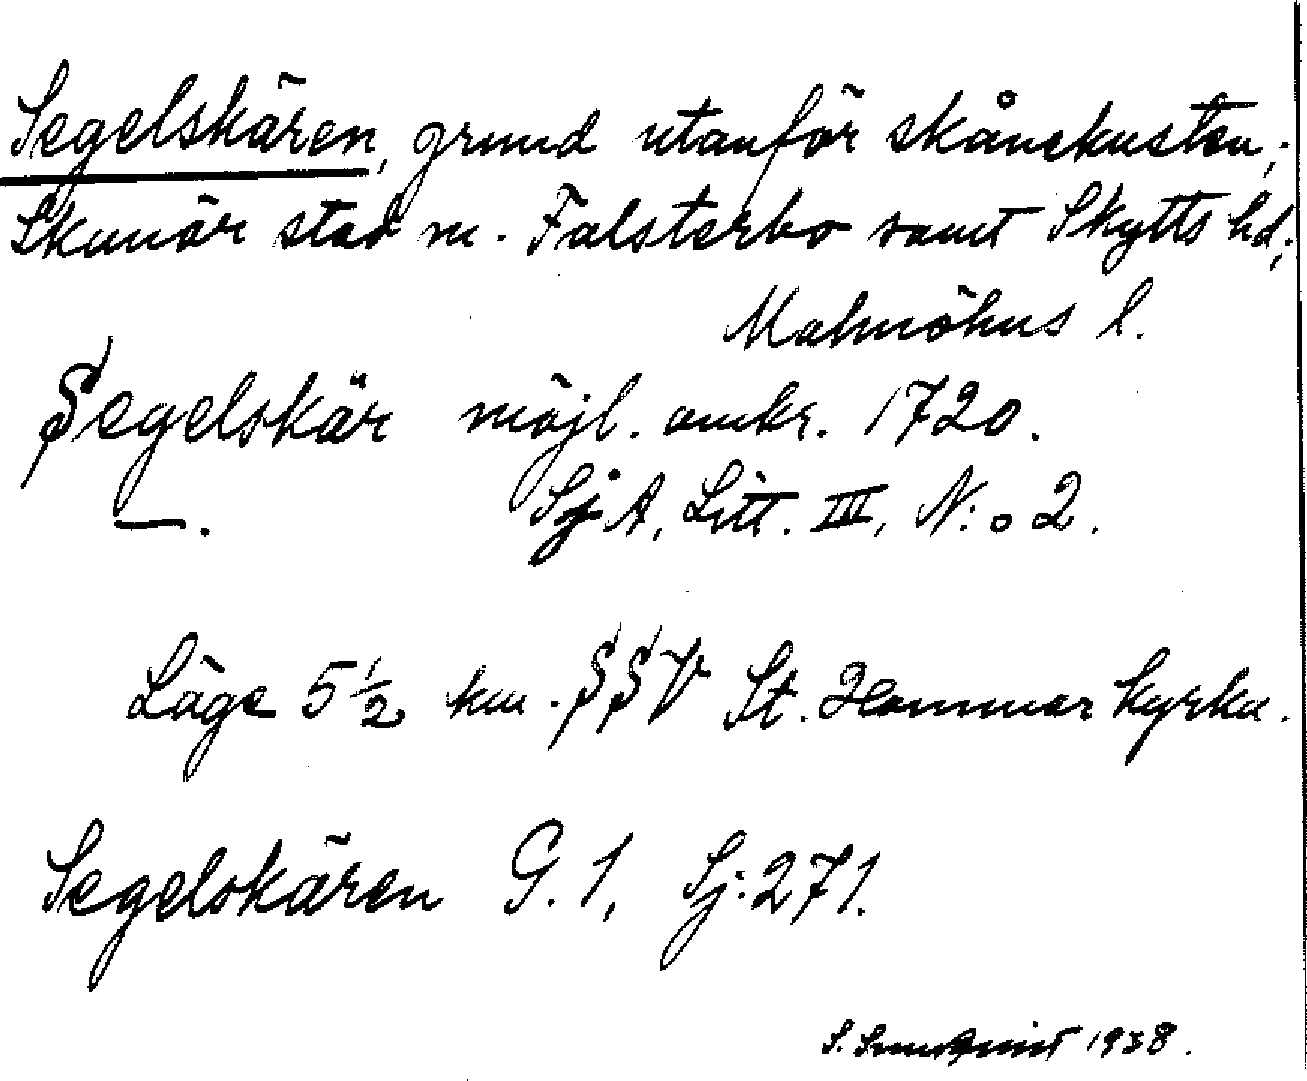 Segelskären, grund utanför skånekusten;
Skanör stad m. Falsterbo samt Skytts hd;
Malmöhus l.
Segelskär möjl. omkr. 1720.
—. SjA, Litt. III, N:o 2.
Läge 5 ½ km. SSV St. Hammar kyrka.
Segelskären G. 1, Sj: 271.
S. 1938.